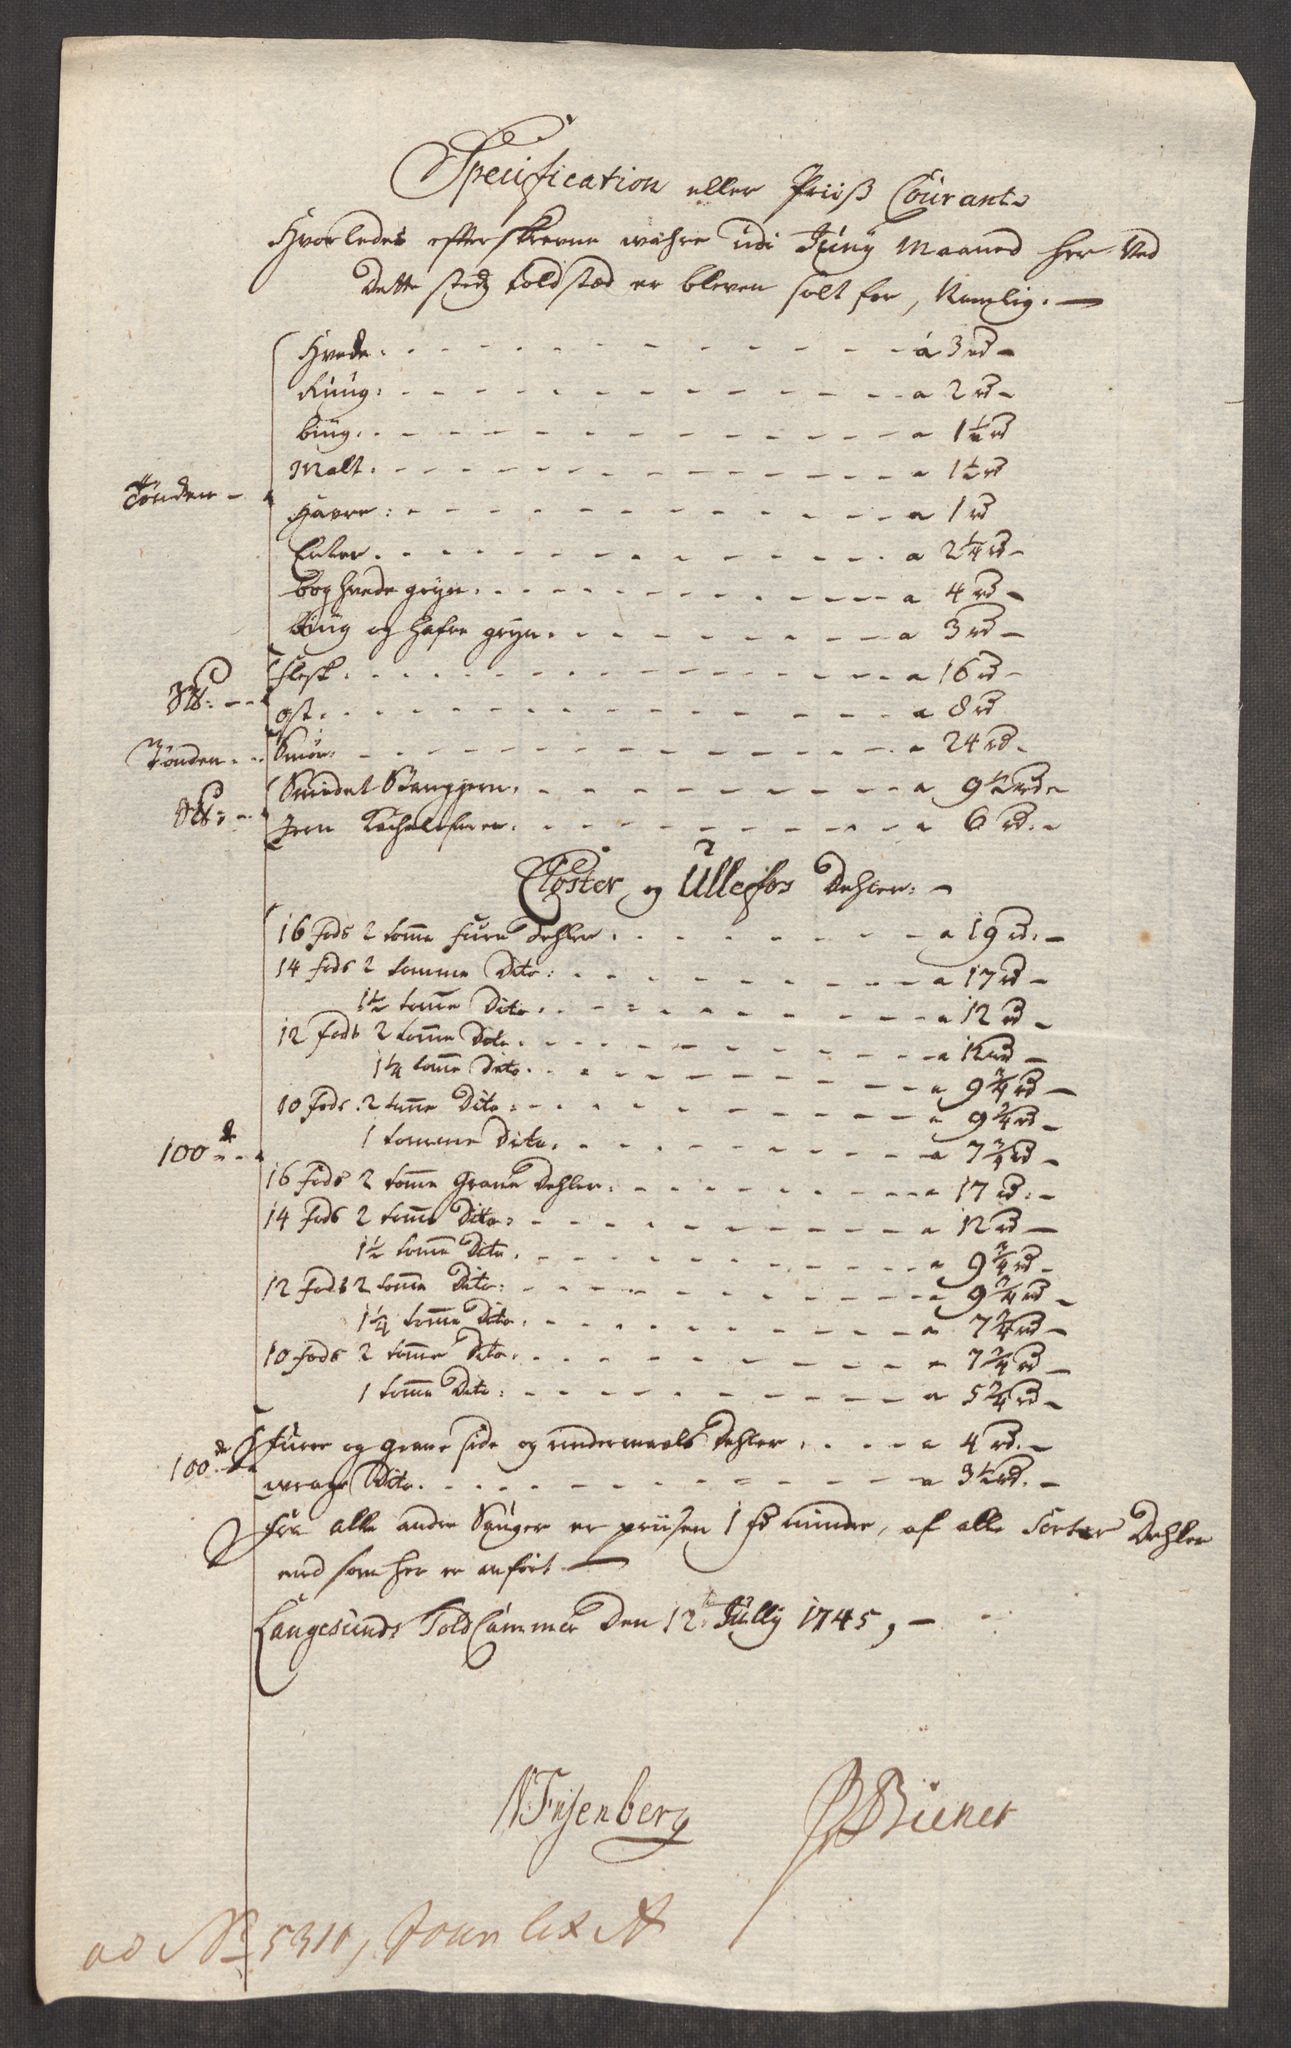 Specification eller Priiß Courant
Hvorledes efterskrevne wahre udi Juny Maaned her Ved
Dette steds toldstæd er bleven solt for, Nemlig. —
Hvede. a 3 rd
Rúúg. a 2 rd
biúg. a 1½ rd
Malt. a 1½ rd
Tønden
Havre. a 1 rd
Erter. a 2¼ rd
bog hvede gryn. a 4 rd
biúg og hafre gryn. a 3 rd
Flesk. a 16 rd
ost. a 8 rd
Tønden Smør. a 24 rd
Smidet Stangjern. a 9½ rd
Jern Kachelofner. a 6 rd.
Closter og Ullefos Dehler.
16 fods 2 tomme fure Dehler. a 19 rd.
14 fods 2 tomme Dito. a 17 rd
1½ tomme Dito. a 12 rd
12 fods 2 tomme Dito. a 12 rd
1¼ tomme Dito. a 9¾ rd
10 fods 2 tomme Dito. a 9¾ rd
1 tomme Dito. a 7¾ rd
100de
16 fods 2 tomme Grane Dehler. a 17 rd.
14 fods 2 tomme Dito. a 12 rd
1½ tomme Dito. a 9¾ rd
12 fods 2 tomme Dito. a 9¾ rd
1¼ tomme Dito. a 7¾ rd
10 fods 2 tomme Dito. a 7¾ rd
1 tomme Dito. a 5¾ rd
100de furer og Grane side og undermaals Dehler. a 4 rd.
wrage Dito. a 3½ rd.
fra alle andre Sauger er prisen 1 rd mindre, af alle Sorter Dehler
end som her er anført —
Langesunds Told Cammer Den 12te Jully 1745,
N Friisenberg
Biener
ad No 5310, Journ lit A